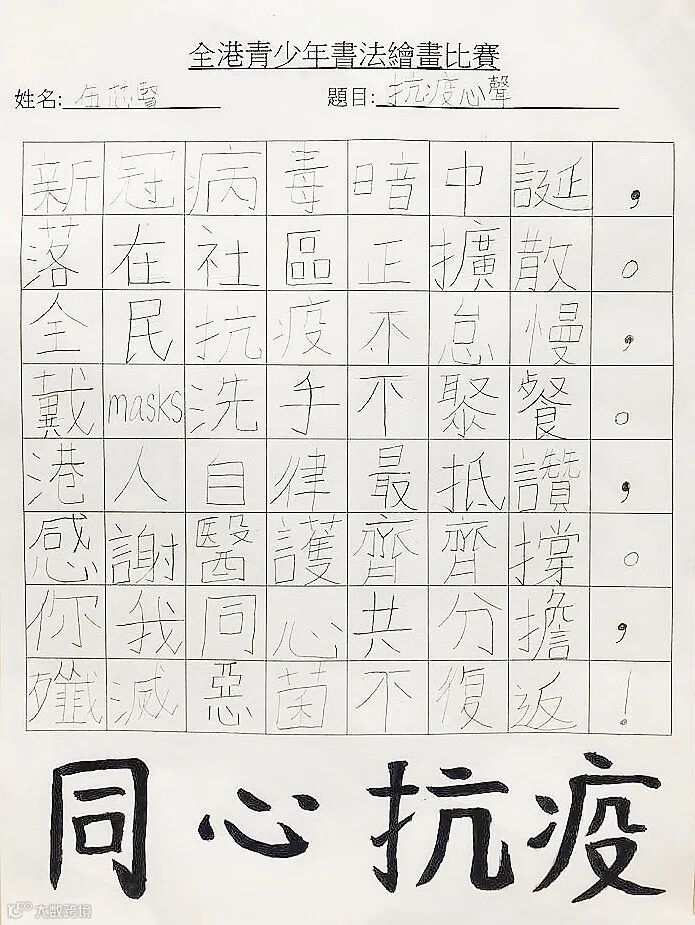 全港青少年書法繪畫比賽
姓名: 題目: 抗疫心聲
新冠病毒暗中誕，
落在社區正擴散。
全民抗疫不怠慢，
戴masks洗手不聚餐。
港人自律最抵讚，
感謝醫護齊齊撐。
你我同心共分擔，
殲滅惡菌不復返！
同心抗疫
大數跨境